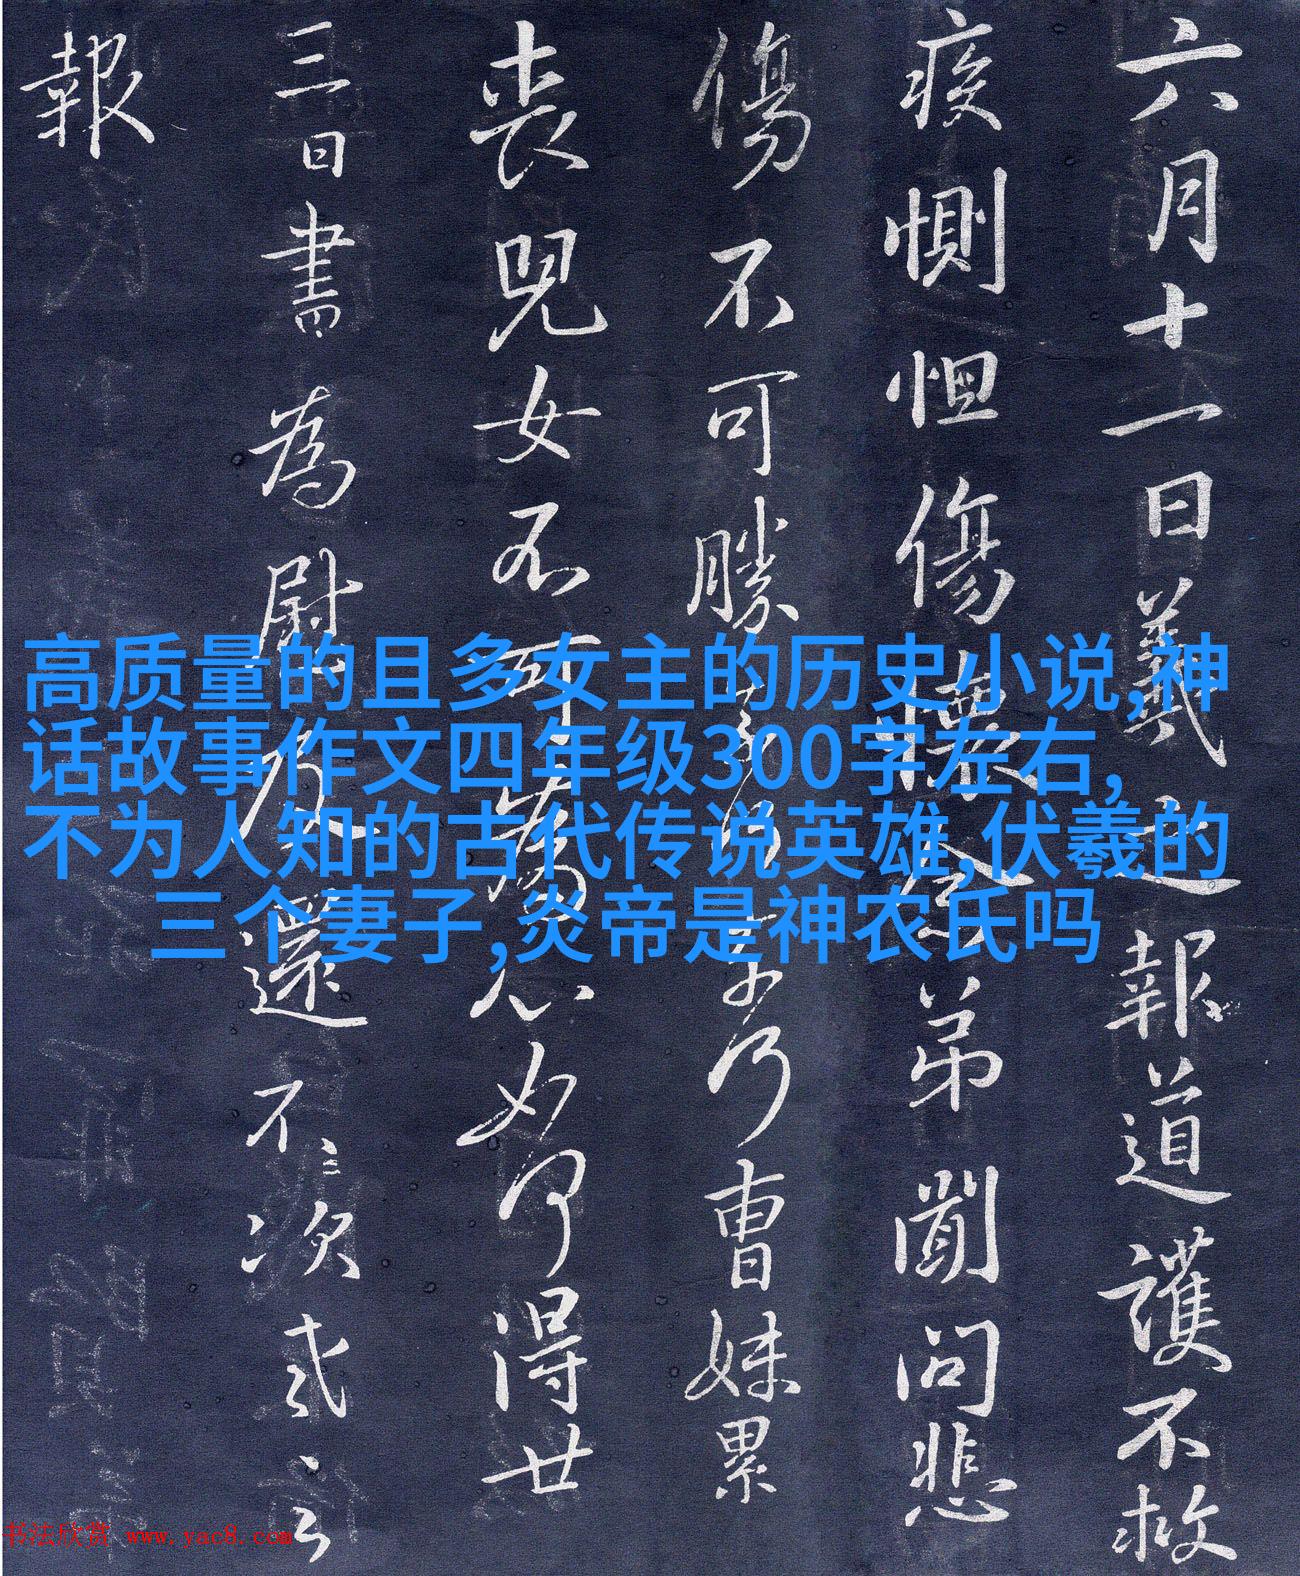 六月十一日羲之報道護不救
疾惻怛傷懷念弟聞問悲
傷不可勝奈何奈何曹妹累
喪兒女不可為心如何得廿
三日書為慰及還不次羲之
報
高质量的且多女主的历史小说,神
话故事作文四年级300字左右,
不为人知的古代传说英雄,伏羲的
三个妻子,炎帝是神农氏吗
书法欣赏 www.yac8.com